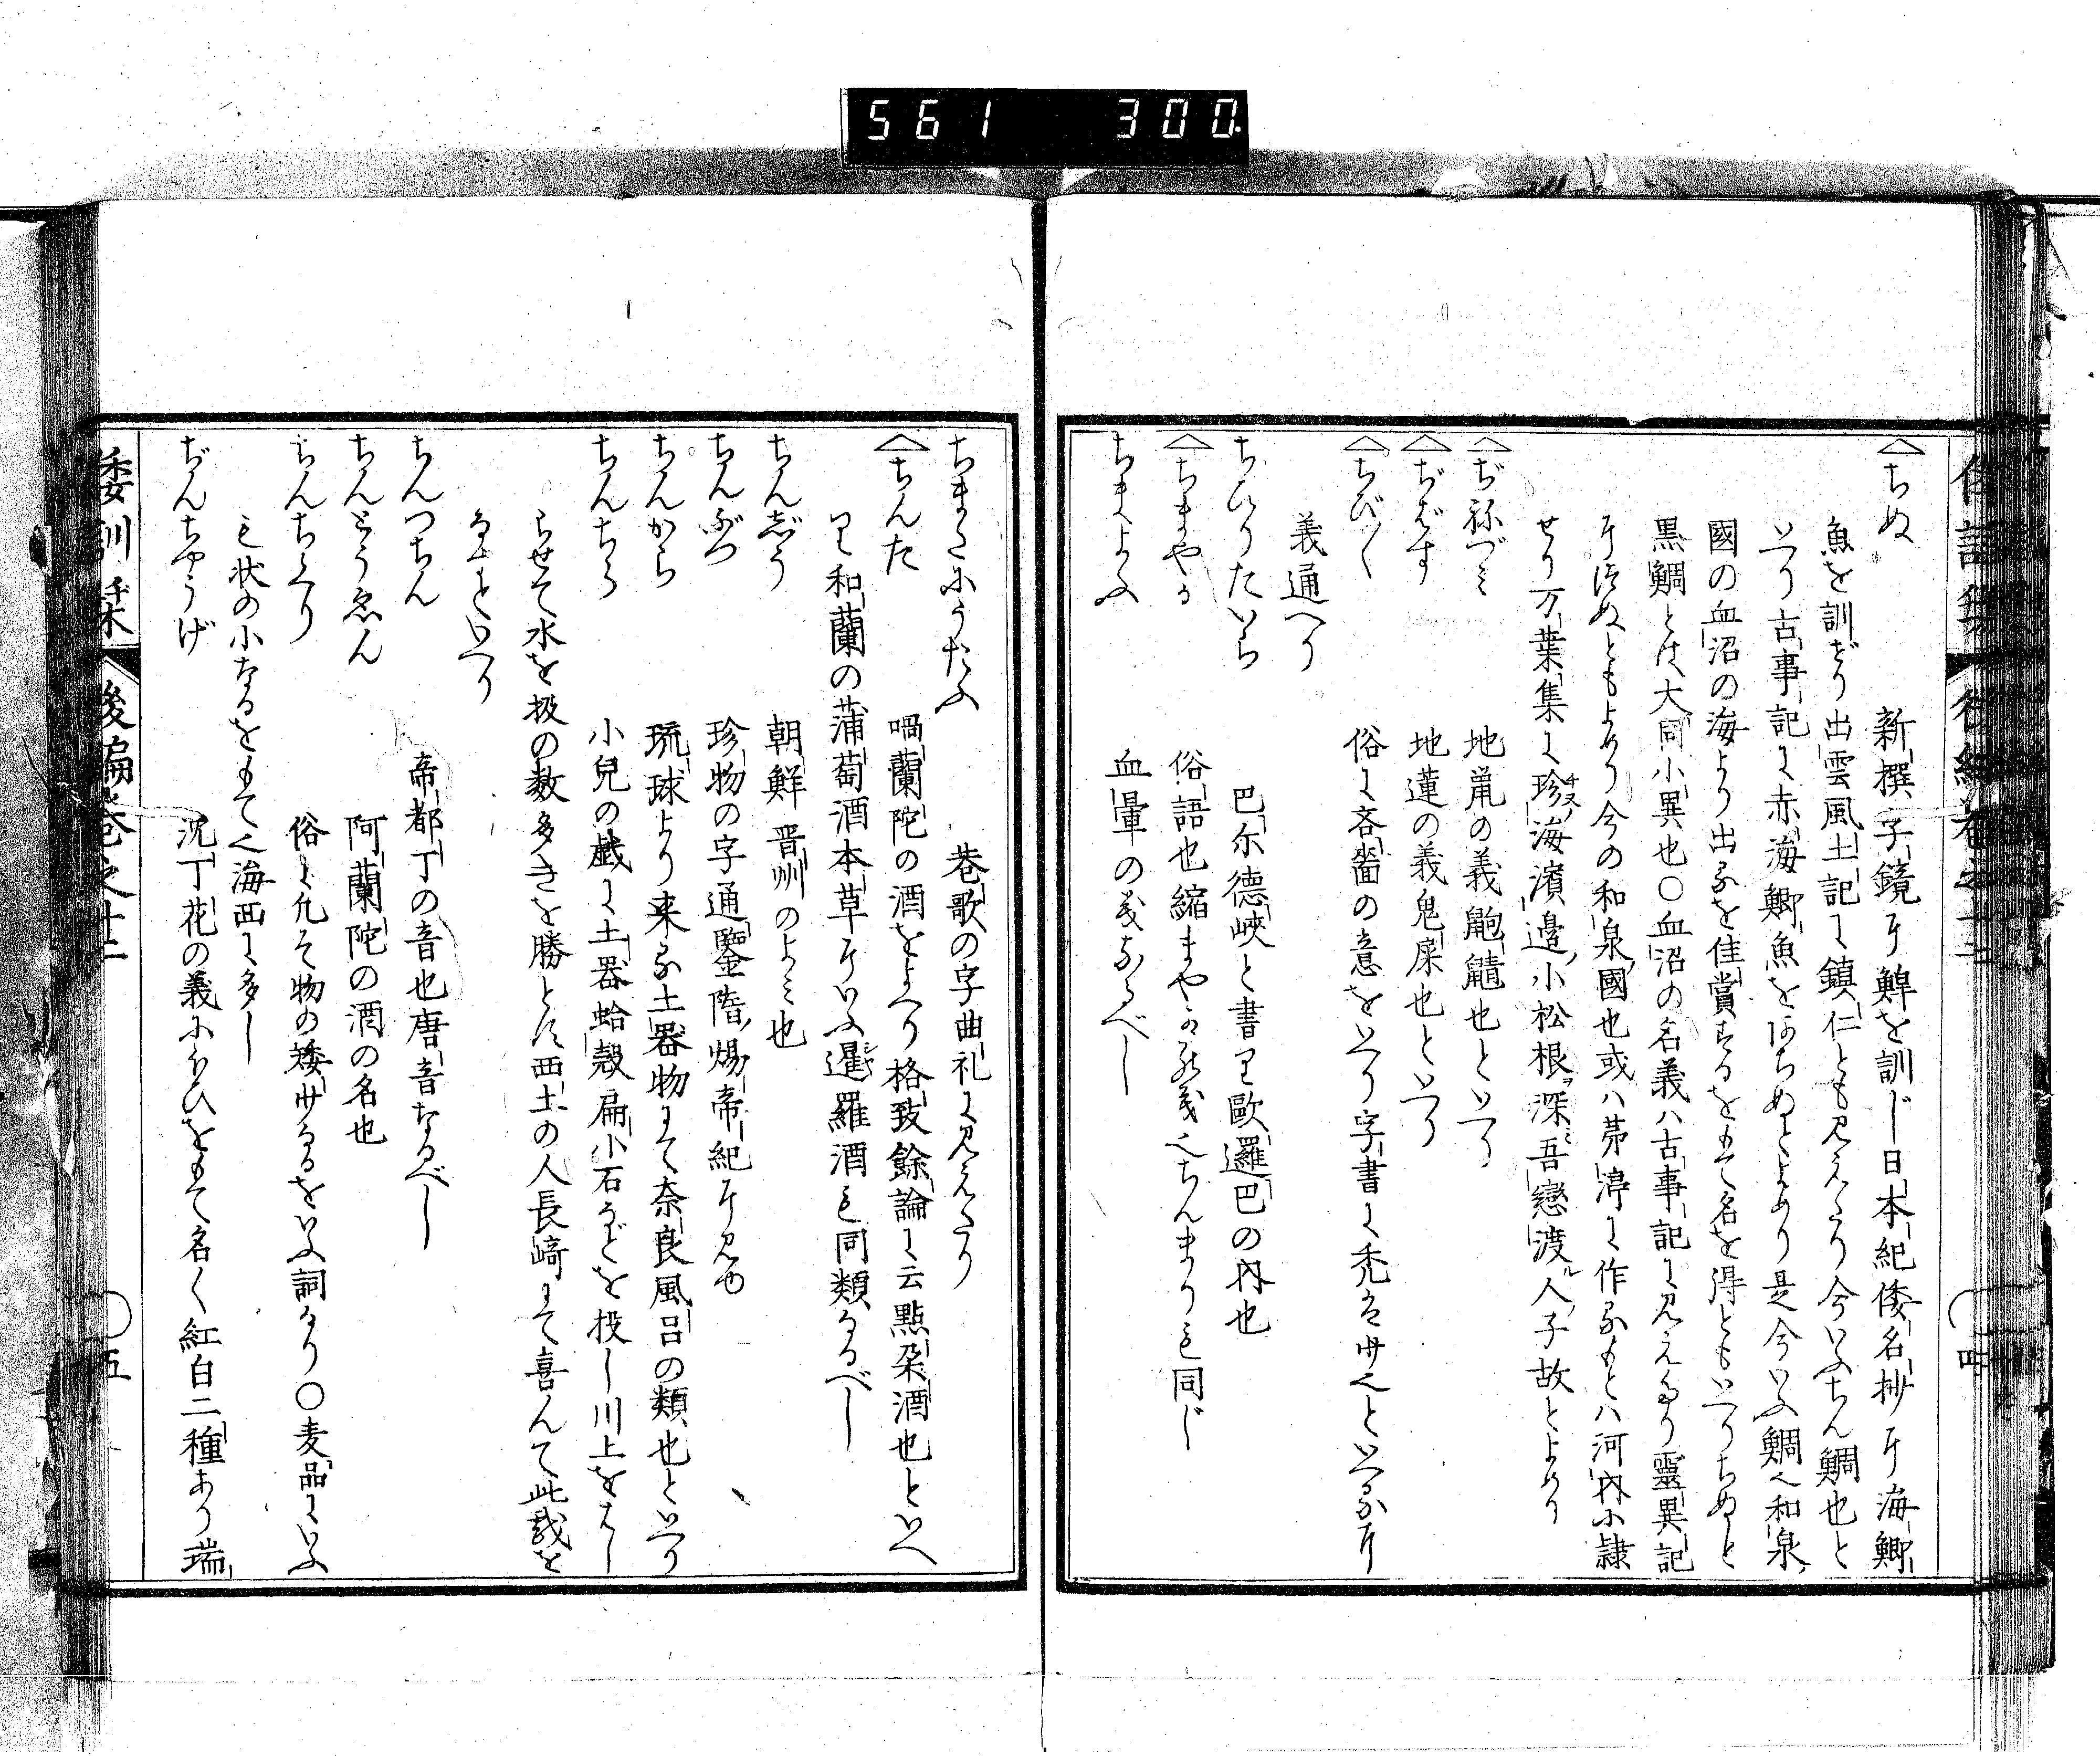 561 300.
倭訓栞 後編巻之十二 四
ちぬ 新撰字鏡に鯶を訓じ日本紀倭名抄に海鯽
魚を訓ぜり出雲風土記に鎮仁とも見えたり今いふちん鯛也と
いへり古事記に赤海鯽魚をあかちぬとよめり是今いふ鯛也和泉
國の血沼の海より出るを佳賞するをもて名を得ともいへりちぬと
黒鯛とは大同小異也〇血沼の名義ハ古事記に見えたり霊異記
にはぬともよめり今の和泉國也或ハ茅渟に作るもとハ河内に隷
せり万葉集に珍海濱邊小松根深吾戀渡人子故とよめり
ぢねづミ 地鼠の義鼩鼱也といへり
ぢばす 地蓮の義鬼𦼮也といへり
ちび〳〵 俗に吝嗇の意をいへり字書に禿はせ也といへるに
義通へり
ちひりたいら 巴尔德峽と書り歐邏巴の内也
ちまやか 俗語也縮まやかの義也ちんまりも同じ
ちまよふ 血暈の義なるべし
ちまたにうたふ 巷歌の字曲礼に見えたり
ちんた 喎蘭陀の酒をよべり格致餘論に云㸃梁酒也といへ
り和蘭の蒲萄酒本草にいふ暹羅酒も同類なるべし
ちんじう 朝鮮晋州のよミ也
ちんぶつ 珍物の字通鑒隋煬帝紀に見ゆ
ちんから 琉球より来る土器物にて奈良風呂の類也といへり
ちんちろ 小兒の戯に土器蛤殻扁小石などを投し川上をはし
らせて水を扱の数多きを勝とす西土の人長崎にて喜んて此戯を
なすといへり
ちんつちん 帝都丁の音也唐音なるべし
ちんとうゑん 阿蘭陀の酒の名也
ちんちくり 俗に凡そ物の矮少なるをいふ詞なり〇麦品にいふ
も状の小なるをもて也海西に多し
ぢんちやうげ 沉丁花の義にほひをもて名く紅白二種あり瑞
倭訓栞 後編巻之十二 五